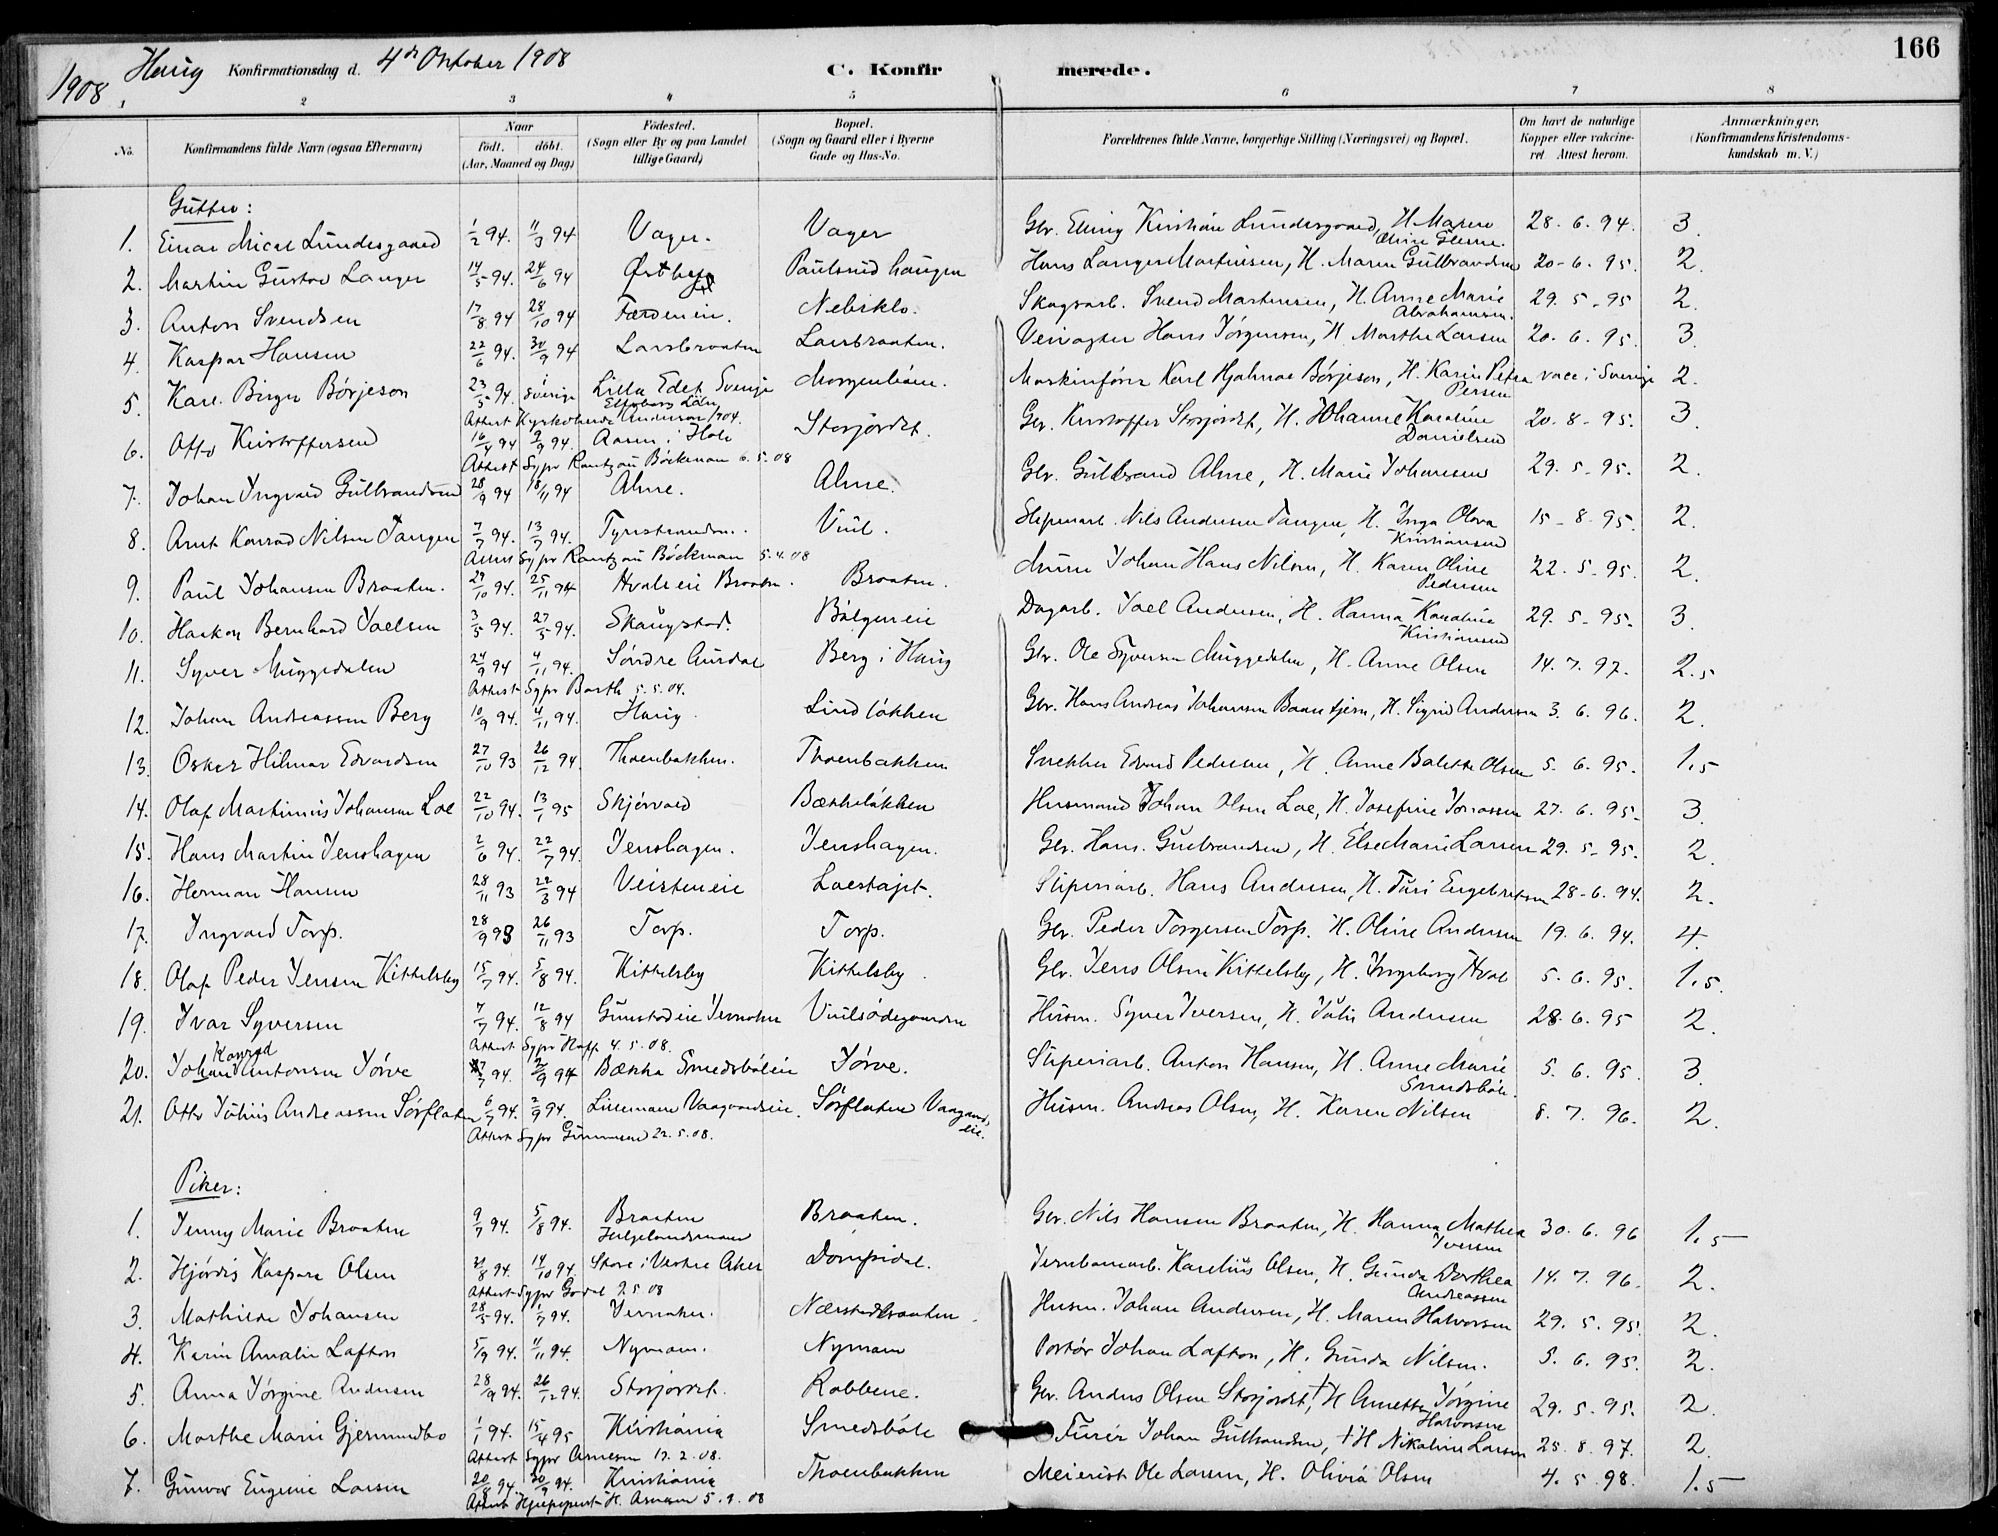 166
1908 Haug Konfirmationsdag d. 4de Oktober 1908 C. Konfirmerede.
1 2 3 4 5 6 7 8
No. Konfirmandens fulde Navn (ogsaa Efternavn) Naar födt. döbt. (Aar, Maaned og Dag) Födested. (Sogn eller By og paa Landet tillige Gaard) Bopæl. (Sogn og Gaard eller i Byerne Gade og Hus-No. Forældrenes fulde Navne, borgerlige Stilling (Næringsvei) og Bopæl. Om havt de naturlige Kopper eller vaccineret Attest herom. Anmærkninger, (Konfirmandens Kristendomskundskab m.V.)
Gutter:
1. Einar Micael Lundesgaard 1/2 94. 11/3 94 Vager. Vager Gbr. Elling Kristian Lundesgaard, H. Maren 28. 6. 94. 3.
2. Martin Gustav Langer 14/5 94. 24/6 94 Østbye Paulsrud haugen Hans Langer Martinsen, H. Maren Gulbrandsen 20-6. 95. 2.
3. Anton Svendsen 17/8 94 28/10 94 Færdeneie. Nebsklo. Skogsarb. Svend Martinsen, H. Anne Marie Abrahamsen. 29. 5. 95 2.
4. Kaspar Hansen 22/6 94. 30/9 94 Larsbraaten Larsbraaten. Veivogter Hans Jørgensen, H. Marthe Larsen 20. 6. 95. 3.
5. Karl Birger Börjeson 23/5 94. Sverige Lilla Edet Sverige Elfsborgs Län Maskinfører Karl Hjalmar Börjeson, H. Karin Petra Persen vacc. i Sverige 2.
Attest Kyrkoherde Anderson 1904.
6. Otto Kristoffersen 16/4 94 2/9 94. Aasen i Hole Storjordet. Gbr. Kristoffer Storjordet, H. Johanne Karoline Danielsen 20. 8. 95. 3.
Attest Sgpr Rantzau Böckman 6. 5. 08
7. Johan Ingvald Gulbrandsen 28/9 94 18/11 94 Alme. Alme. Gbr. Gulbrand Alme, H. Marie Johansen 29. 5. 95. 2.
8. Arnt Konrad Nilsen Tangen 7/7 94. 13/7 94. Tyristranden. Viul. Sliperiarb. Nils Andersen Tangen, H. Inga Olava Kristiansen 15-8. 95. 2.
Attest Sgpr Rantzau Böckman 5. 4. 08
9. Paul Johansen Braaten. 29/10 94. 25/11 94 Hvaleie Braaten. Braaten. Murer Johan Hans Nilsen, H. Karen Oline Pedersen 22. 5. 95. 2.
10. Haakon Bernhard Joelsen 3/5 94. 27/5 94. Skaugstad. Bølgeneie Dagarb. Joel Andersen, H. Hanna Karoline Kristiansen 29. 5. 95. 3.
11. Syver Muggedalen 24/9 94 4/11 94. Søndre Aurdal Berg i Haug Gbr. Ole Syversen Muggedalen, H. Anne Olsen 14. 7. 97. 2.5
Attest Sgpr Barth 5. 5. 04.
12. Johan Andreassen Berg 10/9 94. 4/11 94. Haug. Lindløkken Gbr. Hans Andreas Johansen Baantjern, H. Sigrid Andersen 3. 6. 96. 2.
13. Oskar Hilmar Edvardsen 27/10 93 26/12 94. Thoenbakken. Thoenbakken. Snekker Edvard Pedersen, H. Anne Balette Olsen 5. 6. 95. 1.5
14. Olaf Martinius Johansen Loe 22/10 94. 13/1 95 Skjørvold Bækkeløkken Husmand Johan Olsen Loe, H. Josefine Jonassen 27. 6. 95. 3.
15. Hans Martin Jenshagen 2/6 94. 22/7 94. Jenshagen. Jenshagen. Gbr. Hans Gulbrandsen, H. Else Marie Larsen 29. 5. 95. 2.
16. Herman Hansen 28/11 93 22/3 94 Veisteneie Loestajet. Sliperiarb. Hans Andersen, H. Turi Engebretsen 28-6. 94. 2.
17. Ingvald Torp. 28/9 93 26/11 93 Torp. Torp. Gbr. Peder Torgersen Torp. H. Oline Andersen 19. 6. 94. 4.
18. Olaf Peder Jensen Kittelsby 15/7 94. 5/8 94. Kittelsby Kittelsby. Gbr. Jens Olsen Kittelsby, H. Ingeborg Hval 5. 6. 95. 1.5.
19. Ivar Syversen 7/7 94. 12/8 94 Gunstadeie Jevnaker Viulsødegaarden Husm. Syver Iversen, H. Julie Andersen 28. 6. 95 2.
Attest Sgpr Hoff 4. 5. 08.
20. Johan Konrad Antonsen Jørve 17/7 94. 2/9 94 Bække Smedsbøleie Jørve. Sliperiarb. Anton Hansen, H. Anne Marie Smedsbøle. 5. 6. 95. 3.
21. Otto Julius Andreassen Sørflaten 6/7 94. 2/9 94. Lillemoen Vaagaardseie. Sørflaten Vaagaards eie. Husm. Andreas Olsen, H. Karen Nilsen 8. 7. 96. 2.
Attest Sgpr Gunnersen 22. 5. 08.
Piker:
1. Jenny Marie Braaten 9/7 94. 5/8 94. Braaten Helgelandsmoen Braaten. Gbr. Nils Hansen Braaten, H. Hanna Mathea Iversen 30. 6. 96 1.5
2. Hjørdis Kaspara Olsen 21/8 94. 14/10 94. Store i Vestre Aker Dompidal. Jernbanearb. Karelius Olsen, H. Gunda Dorthea Andreassen 14. 7. 96. 2.
Attest Sgpr Godal 2. 5 08
3. Mathilde Johansen 28/5 94. 1/7 94. Jevnaker. Nærstadbraaten. Husm. Johan Andersen, H. Maren Halvorsen 29. 5. 95. 2.
4. Karin Amalie Lafton 5/9 94. 4/11 94. Nymoen. Nymoen Portør Johan Lafton, H. Gunda Nilsen. 5. 6. 95. 2.
5. Anna Jørgine Andersen 28/9 94. 26/12 94. Storjordet. Robbene. Gbr. Anders Olsen Storjordet, † H Annette Jørgine Halvorsen 29. 5. 95. 2.
6. Marthe Marie Gjermundbo 1/1 94. 15/4 95 Kristiania Smedsbøle Furér Johan Gulbrandsen, † H Nikoline Larsen 25. 8. 97. 2.
Attest Sgpr Arnesen 17. 2. 08.
7. Gunvor Eugenie Larsen 20/8 94. 30/9 94. Kristiania Thoenbakken Meierist Ole Larsen, H. Olivia Olsen 4. 5. 98. 1.5
Attest Hjælpeprest H. Arnesen 5. 9. 08